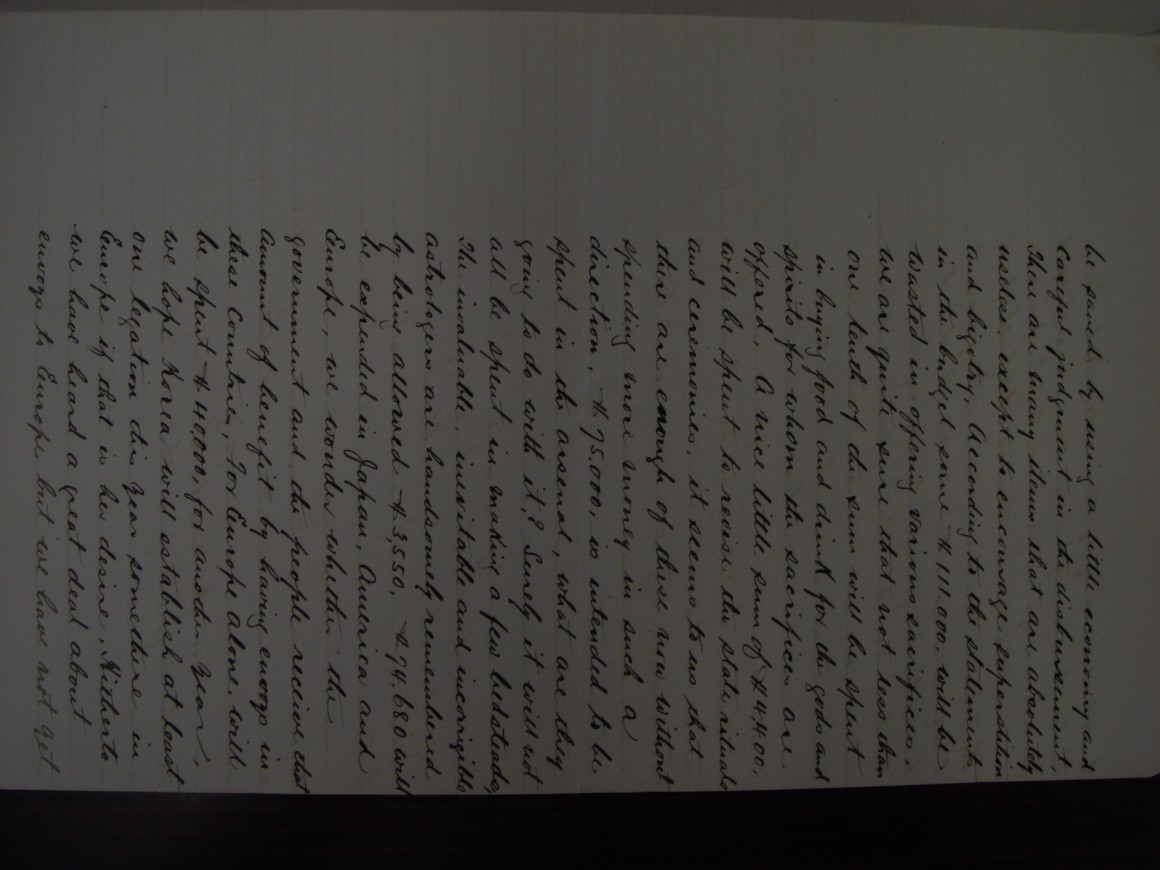 be saved by using a little economy and
careful judgment in the disbursement.
There are many items that are absolutely
useless except to encourage superstition
and bigotry. According to the statements
in the budget some $111.000. will be
wasted in offering various sacrifices.
We are quite sure that not less than
one tenth of the sum will be spent
in buying food and drink for the gods and
spirits for whom the sacrifices are
offered. A nice little sum of $4,400.
will be spent to revise the state rituals
and ceremonies, it seems to us that
there are enough of these now without
spending more money in such a
direction. $75.000. is intended to be
spent in the arsenal, what are they
going to do with it? Surely it will not
all be spent in making a few bedsteads,
The invaluable, inevitable and incorrigible
astrologers are handsomely remembered
by being allowed $3,550. $94.680 will
be expended in Japan, America and
Europe, we wonder whether the
government and the people receive that
amount of benefit by having envoys in
these countries, for Europe alone. will
be spent $40000, for another year,
we hope Korea will establish at least
one legation this year somewhere in
Europe if that is her desire. Hitherto
we have heard a great deal about
envoys to Europe but we have not yet